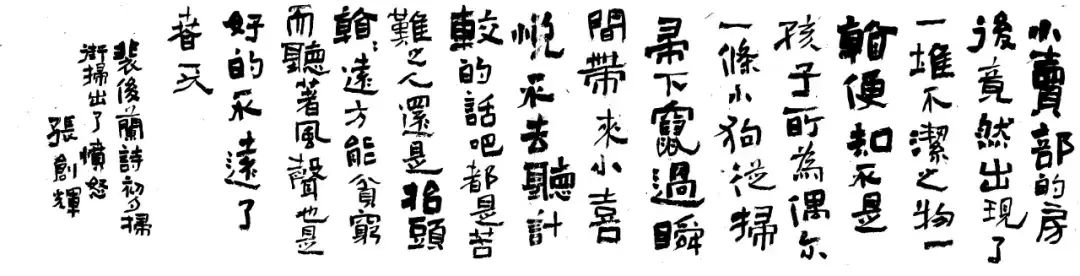 小賣部的房
後竟然出現了
一堆不潔之物一
看便知不是
孩子所為偶尔
一條小狗從掃
帚下竄過瞬
間帶來小喜
悅不去聽計
較的話吧都是苦
難之人還是抬頭
看：遠方能貧窮
而聽著風聲也是
好的不遠了
春天
裴後蘭詩初掃
街掃出了憤怒
張創輝